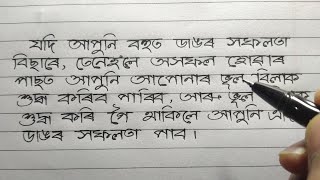 যদি আপুনি বহুত ডাঙৰ সফলতা
বিছাৰে, তেনেহ'লে অসফল হোৱাৰ
পাছত আপুনি আপোনাৰ ভুল বিলাক
শুদ্ধ কৰিব পাৰিব, আৰু ভুল
শুদ্ধ কৰি গৈ থাকিলে আপুনি
ডাঙৰ সফলতা পাব।